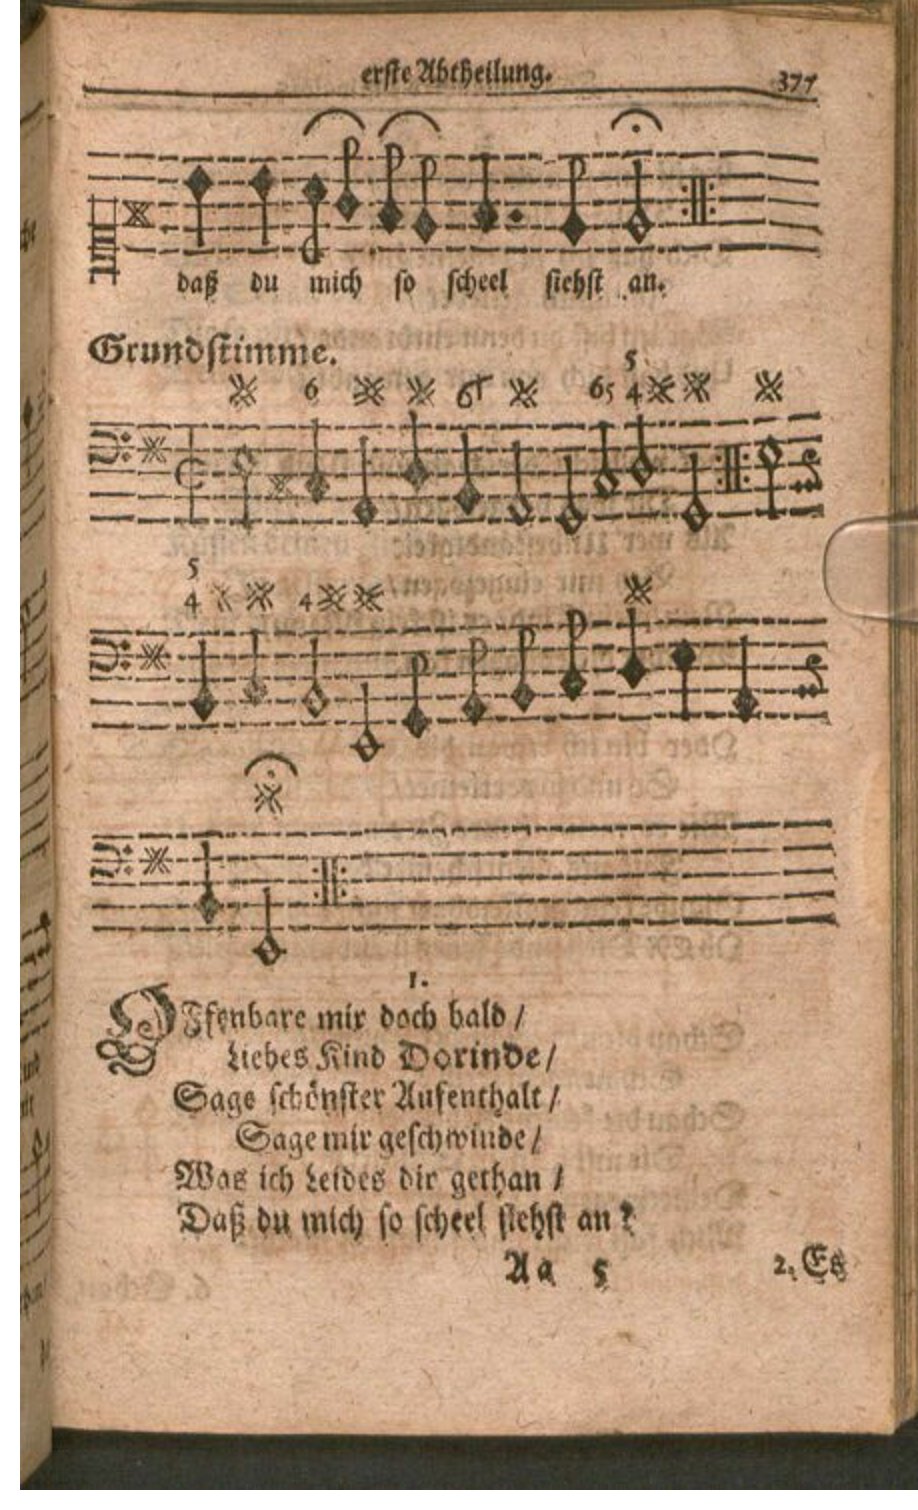 erste Abtheilung. 377
daß du mich so scheel siehst an.
Grundstimme.
5
6 6 65 4
5
4 4
1.
OFfenbare mir doch bald /
Liebes Kind Dorinde /
Sage schönster Aufenthalt /
Sage mir geschwinde /
Was ich Leides dir gethan /
Daß du mich so scheel siehst an ?
Aa 5 2. Es